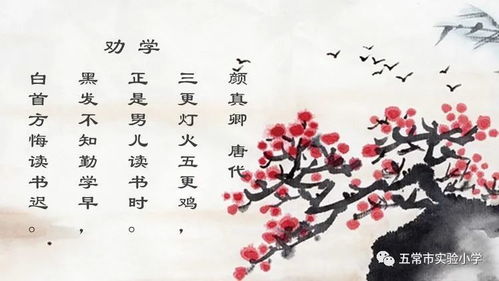 劝学
颜真卿 唐代
三更灯火五更鸡，
正是男儿读书时。
黑发不知勤学早，
白首方悔读书迟。
五常市实验小学